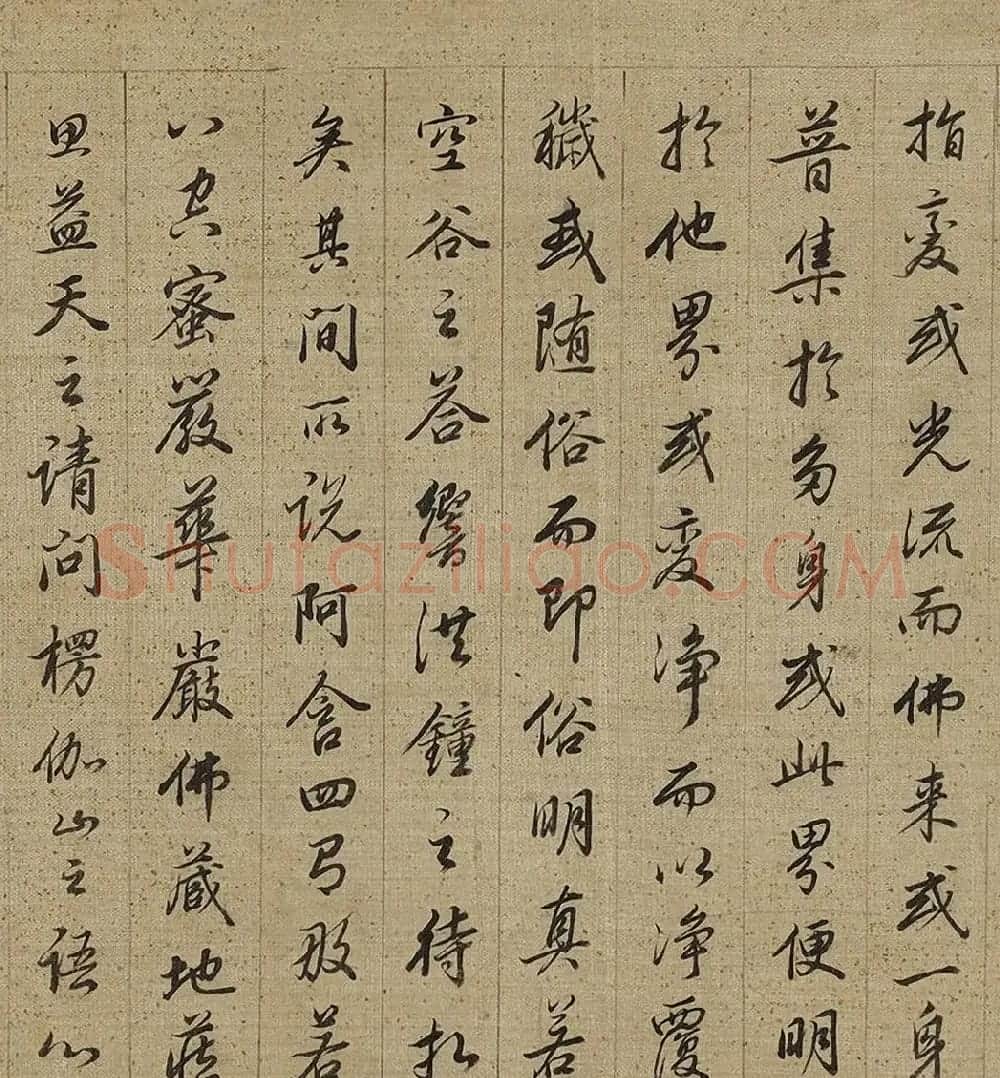 指變或光流而佛来或一身
普集於多身或此界便明
於他界或變淨而以淨覆
穢或随俗而即俗明真若
空谷之答響洪鐘之待扣
矣其間所説阿含四般若
八蜜嚴華嚴佛藏地藏
思益天之請問楞伽山之語心
Shufaziliao.COM